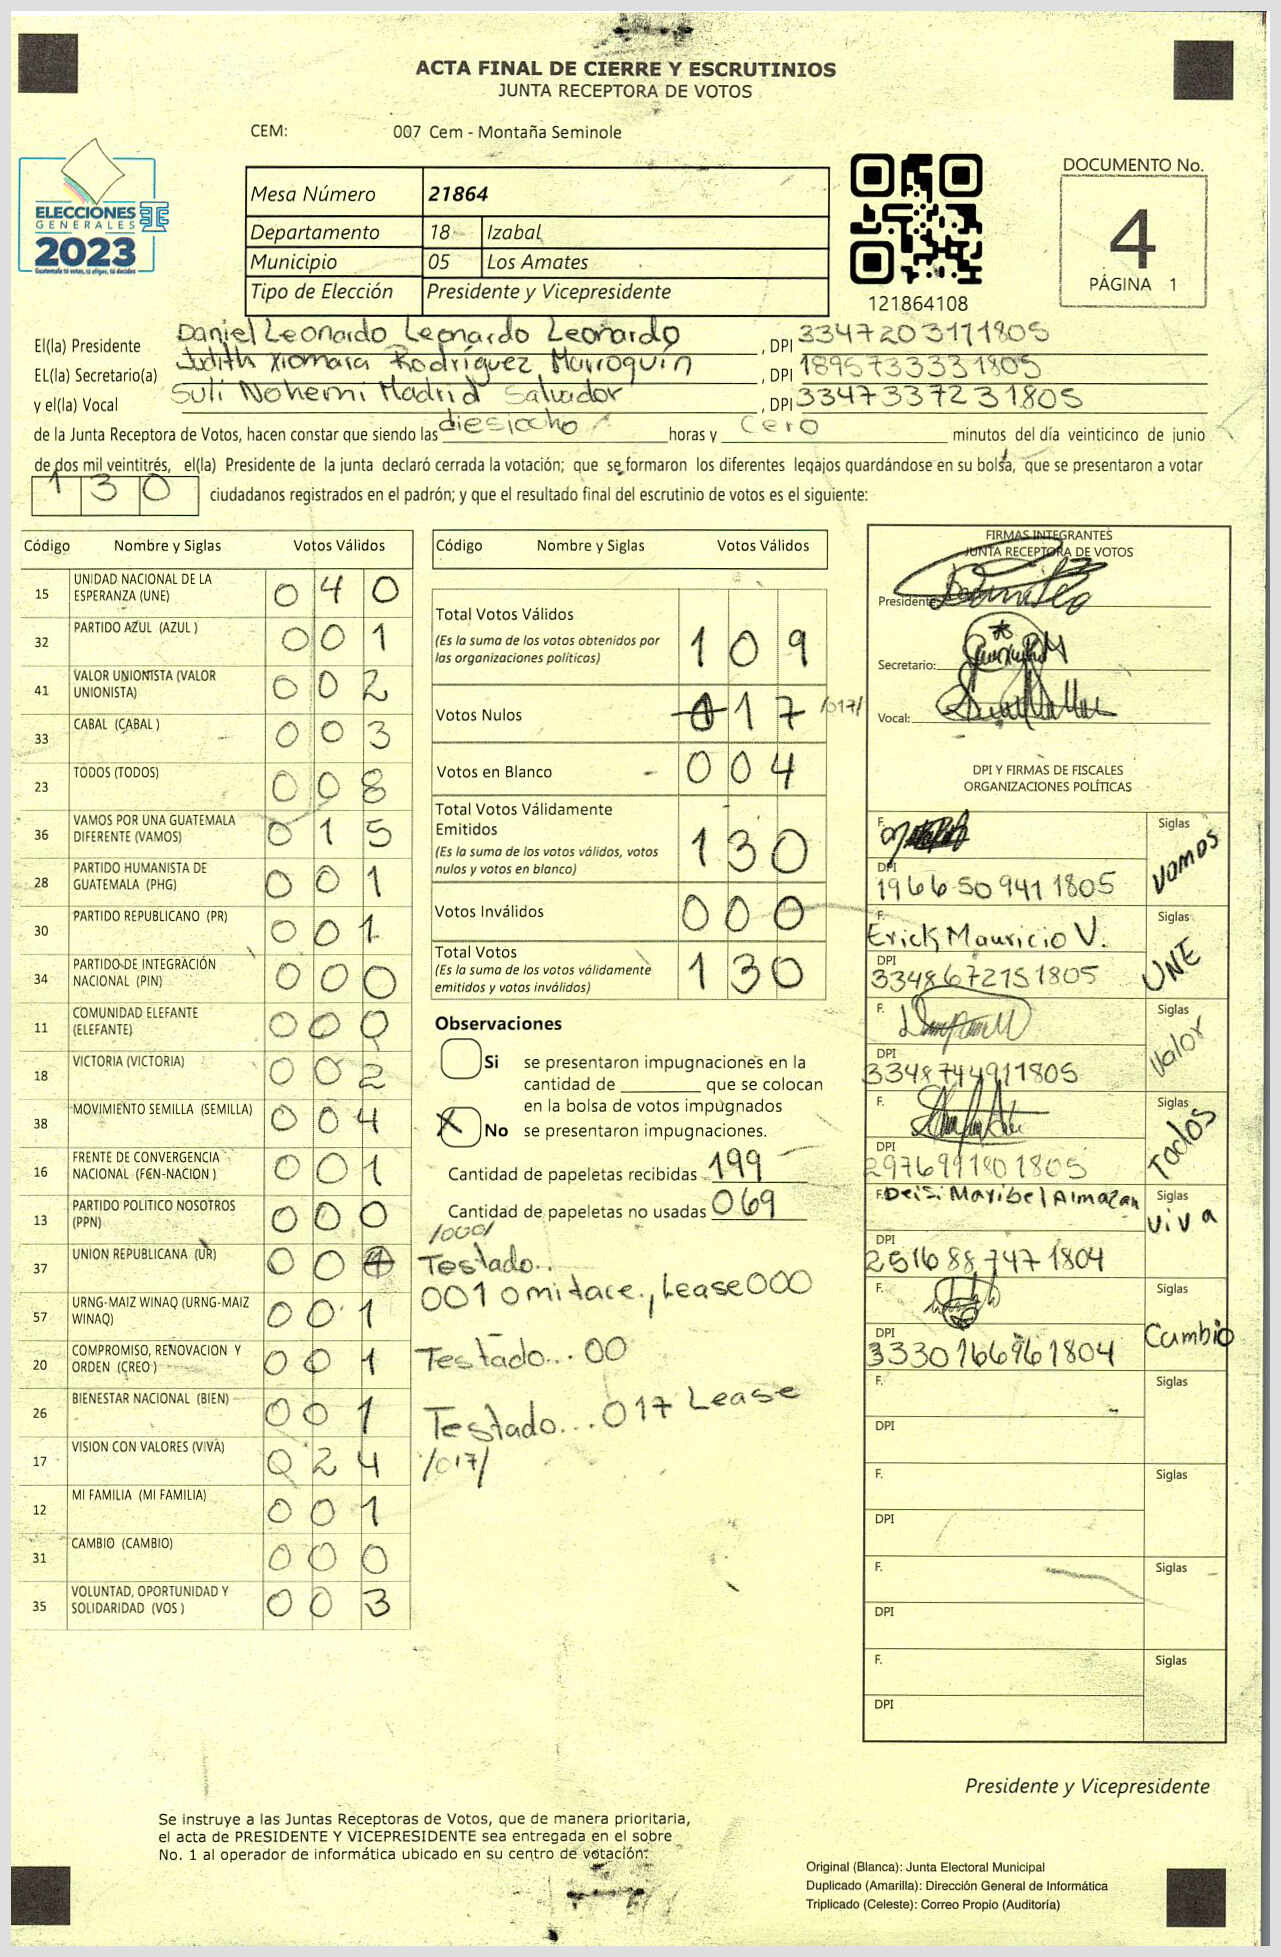 ACTA FINAL DE CIERRE Y ESCRUTINIOS
JUNTA RECEPTORA DE VOTOS
CEM: 007 Cem - Montaña Seminole
ELECCIONES
GENERALES
2023
Guatemala tú votas, tú eliges, tú decides
Mesa Número 21864
Departamento 18 Izabal
Municipio 05 Los Amates
Tipo de Elección Presidente y Vicepresidente
121864108
DOCUMENTO No.
4
PÁGINA 1
El(la) Presidente Daniel Leonardo Leonardo Leonardo , DPI 3347203171805
EL(la) Secretario(a) Judith Xiomara Rodríguez Marroquín , DPI 1895733331805
y el(la) Vocal Suli Nohemi Madrid Salvador , DPI 3347337231805
de la Junta Receptora de Votos, hacen constar que siendo las diesiocho horas y cero minutos del día veinticinco de junio
de dos mil veintitrés, el(la) Presidente de la junta declaró cerrada la votación; que se formaron los diferentes legajos guardándose en su bolsa, que se presentaron a votar
130 ciudadanos registrados en el padrón; y que el resultado final del escrutinio de votos es el siguiente:
Código Nombre y Siglas Votos Válidos
15 UNIDAD NACIONAL DE LA ESPERANZA (UNE) 040
32 PARTIDO AZUL (AZUL ) 001
41 VALOR UNIONISTA (VALOR UNIONISTA) 002
33 CABAL (CABAL ) 003
23 TODOS (TODOS) 008
36 VAMOS POR UNA GUATEMALA DIFERENTE (VAMOS) 015
28 PARTIDO HUMANISTA DE GUATEMALA (PHG) 001
30 PARTIDO REPUBLICANO (PR) 001
34 PARTIDO DE INTEGRACIÓN NACIONAL (PIN) 000
11 COMUNIDAD ELEFANTE (ELEFANTE) 000
18 VICTORIA (VICTORIA) 002
38 MOVIMIENTO SEMILLA (SEMILLA) 004
16 FRENTE DE CONVERGENCIA NACIONAL (FCN-NACION ) 001
13 PARTIDO POLITICO NOSOTROS (PPN) 000
37 UNION REPUBLICANA (UR) 00
57 URNG-MAIZ WINAQ (URNG-MAIZ WINAQ) 001
20 COMPROMISO, RENOVACION Y ORDEN (CREO ) 001
26 BIENESTAR NACIONAL (BIEN) 001
17 VISION CON VALORES (VIVA) 024
12 MI FAMILIA (MI FAMILIA) 001
31 CAMBIO (CAMBIO) 000
35 VOLUNTAD, OPORTUNIDAD Y SOLIDARIDAD (VOS ) 003
Código Nombre y Siglas Votos Válidos
Total Votos Válidos 109
(Es la suma de los votos obtenidos por
las organizaciones políticas)
Votos Nulos 017 /017/
Votos en Blanco 004
Total Votos Válidamente
Emitidos 130
(Es la suma de los votos válidos, votos
nulos y votos en blanco)
Votos Inválidos 000
Total Votos 130
(Es la suma de los votos válidamente
emitidos y votos inválidos)
Observaciones
Si se presentaron impugnaciones en la
cantidad de ________ que se colocan
en la bolsa de votos impugnados
X No se presentaron impugnaciones.
Cantidad de papeletas recibidas 199
Cantidad de papeletas no usadas 069
/000/
Testado..
001 omitace., Lease 000
Testado... 00
Testado... 017 Lease
/017/
FIRMAS INTEGRANTES
JUNTA RECEPTORA DE VOTOS
Presidente:
Secretario:
Vocal:
DPI Y FIRMAS DE FISCALES
ORGANIZACIONES POLÍTICAS
F. Siglas
Vamos
DPI
1966509411805
F. Siglas
Erick Mauricio V.
UNE
DPI
3348672151805
F. Siglas
Valor
DPI
3348744911805
F. Siglas
Todos
DPI
2976991801805
F. Deisi Maribel Almazan Siglas
Viva
DPI
2516887471804
F. Siglas
Cambio
DPI
3330166961804
F. Siglas
DPI
F. Siglas
DPI
F. Siglas
DPI
F. Siglas
DPI
Presidente y Vicepresidente
Se instruye a las Juntas Receptoras de Votos, que de manera prioritaria,
el acta de PRESIDENTE Y VICEPRESIDENTE sea entregada en el sobre
No. 1 al operador de informática ubicado en su centro de votación.
Original (Blanca): Junta Electoral Municipal
Duplicado (Amarilla): Dirección General de Informática
Triplicado (Celeste): Correo Propio (Auditoría)